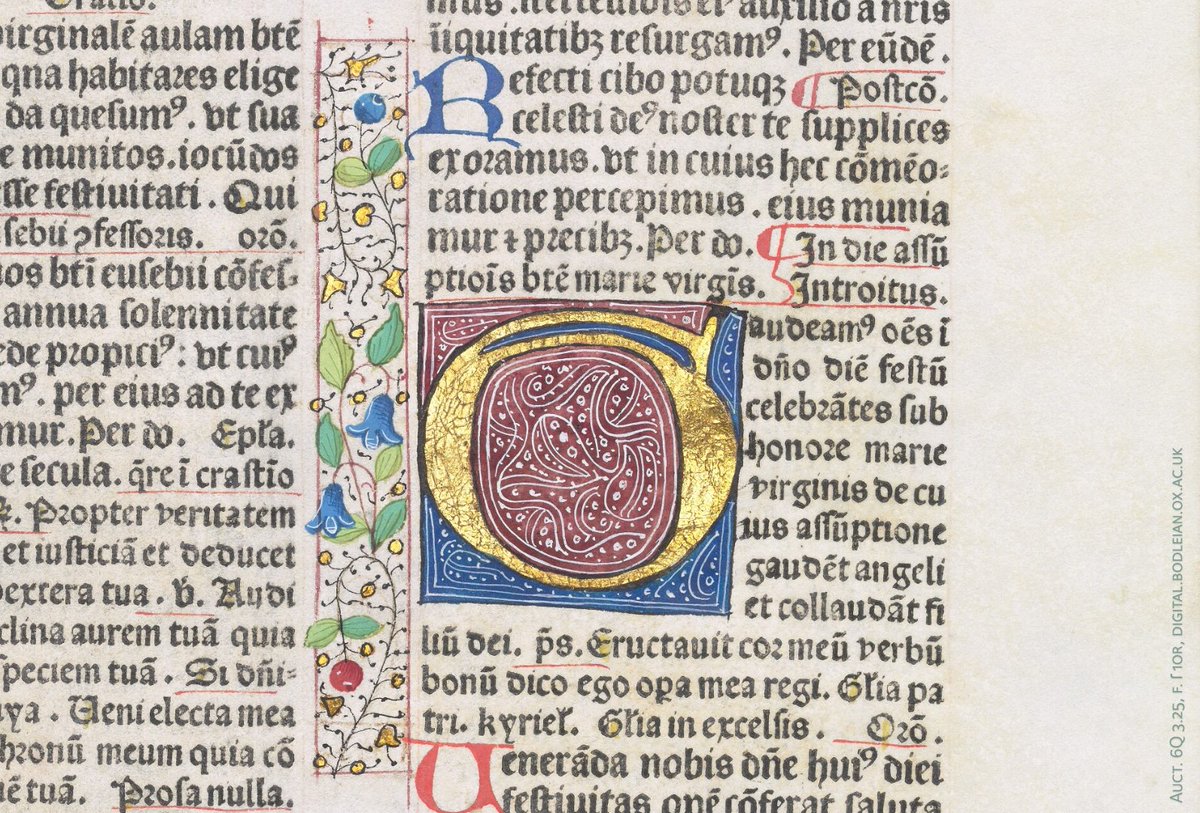 Oratio.
virginalē aulam btē
qna habitares elige
da quesumꝰ. vt sua
e munitos. iocūdos
esse festiuitati. Qui
sebii ꝓfessoris. orō.
uos bti eusebii cōfes-
annua solennitate
ede propiciꝰ: vt cuiꝰ
mꝰ. per eius ad te ex
mur. Per do. Epła.
e secula. qre ī crastīo
Propter veritatem
et iusticiā et deducet
dextera tua. ꝟ. Audi
clina aurem tuā quia
speciem tuā. Si dñi-
uya. Ueni electa mea
thronū meum quia cō
uē tuā. Prosa nulla.
auxilio a nris
īiquitatibꝫ resurgamꝰ. Per eūdē.
Refecti cibo potuqꝫ ¶ Postcō.
celesti deꝰ noster te supplices
exoramus. vt in cuius hec cōmēo-
ratione percepimus. eius munia
mur ⁊ precibꝫ. Per do. ¶ In die assū
ptiois btē marie virgis. Introitus.
Gaudeamꝰ oēs ī
dño diē festū
celebrātes sub
honore marie
virginis de cu
ius assūptione
gaudēt angeli
et collaudāt fi
liū dei. ps. Eructauit cor meū verbū
bonū dico ego opa mea regi. Glia pa
tri. kyrieł. Glia in excelsis. Orō.
Uenerāda nobis dñe huiꝰ diei
festiuitas opē cōferat saluta
AUCT. 6Q 3.25, F. [10R, DIGITAL.BODLEIAN.OX.AC.UK